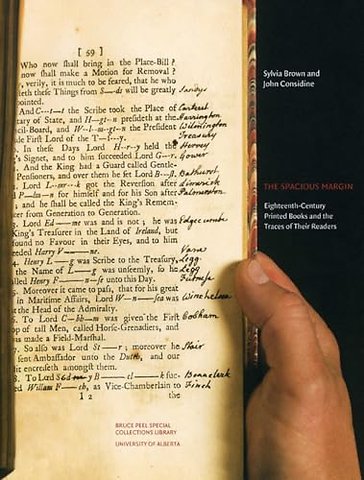 [ 59 ]
Who now shall bring in the Place-Bill?
now shall make a Motion for Removal?
, verily, it is much to be feared, that he who
ieth these Things from S—ds will be greatly
Sandys
pointed.
And C—t the Scribe took the Place of
Carteret
tary of State, and H—gt—n presideth at the
Harrington
cil-Board, and W—l—m—gt—n the President
Wilmington
ule First Lord of the T—ſ—y.
Treasury
. In these Days Lord H—r—y held the
Hervey
's Signet, and to him succeeded Lord G—r.
Gower
. And the King had a Guard called Gentle-
Pensioners, and over them he set Lord B—ſt.
Bathurst
. Lord L—m—k got the Reversion after
Limerick
P—lm—n for himself and for his Son after
Palmerston
, and he shall be called the King's Remem-
cer from Generation to Generation.
. Lord Ed—me was and is not; he was
Edgecombe
King's Treasurer in the Land of Ireland, but
found no Favour in their Eyes, and to him
eeded Harry V—ne.
Vane
4. Henry L—g was Scribe to the Treasury,
Legg
the Name of L—g was unseemly, so he
Legg
alled Henry F—n—se unto this Day.
Furnese
. Moreover it came to pass, that for his great
in Maritime Affairs, Lord W—n—sea was
Winchelsea
t the Head of the Admiralty.
. To Lord C—bh—m was given the First
Cobham
op of tall Men, called Horse-Grenadiers, and
as made a Field-Marshal.
. So also was Lord St—r; moreover he
Stair
sent Ambassador unto the Dutch, and our
encreseth amongst them.
8. To Lord Sidney B—cl—k suc-
Beauclerk
ed William F—ch, as Vice-Chamberlain to
Finch
I 2 the
Sylvia Brown and
John Considine
THE SPACIOUS MARGIN
Eighteenth-Century
Printed Books and the
Traces of Their Readers
BRUCE PEEL SPECIAL
COLLECTIONS LIBRARY
UNIVERSITY OF ALBERTA